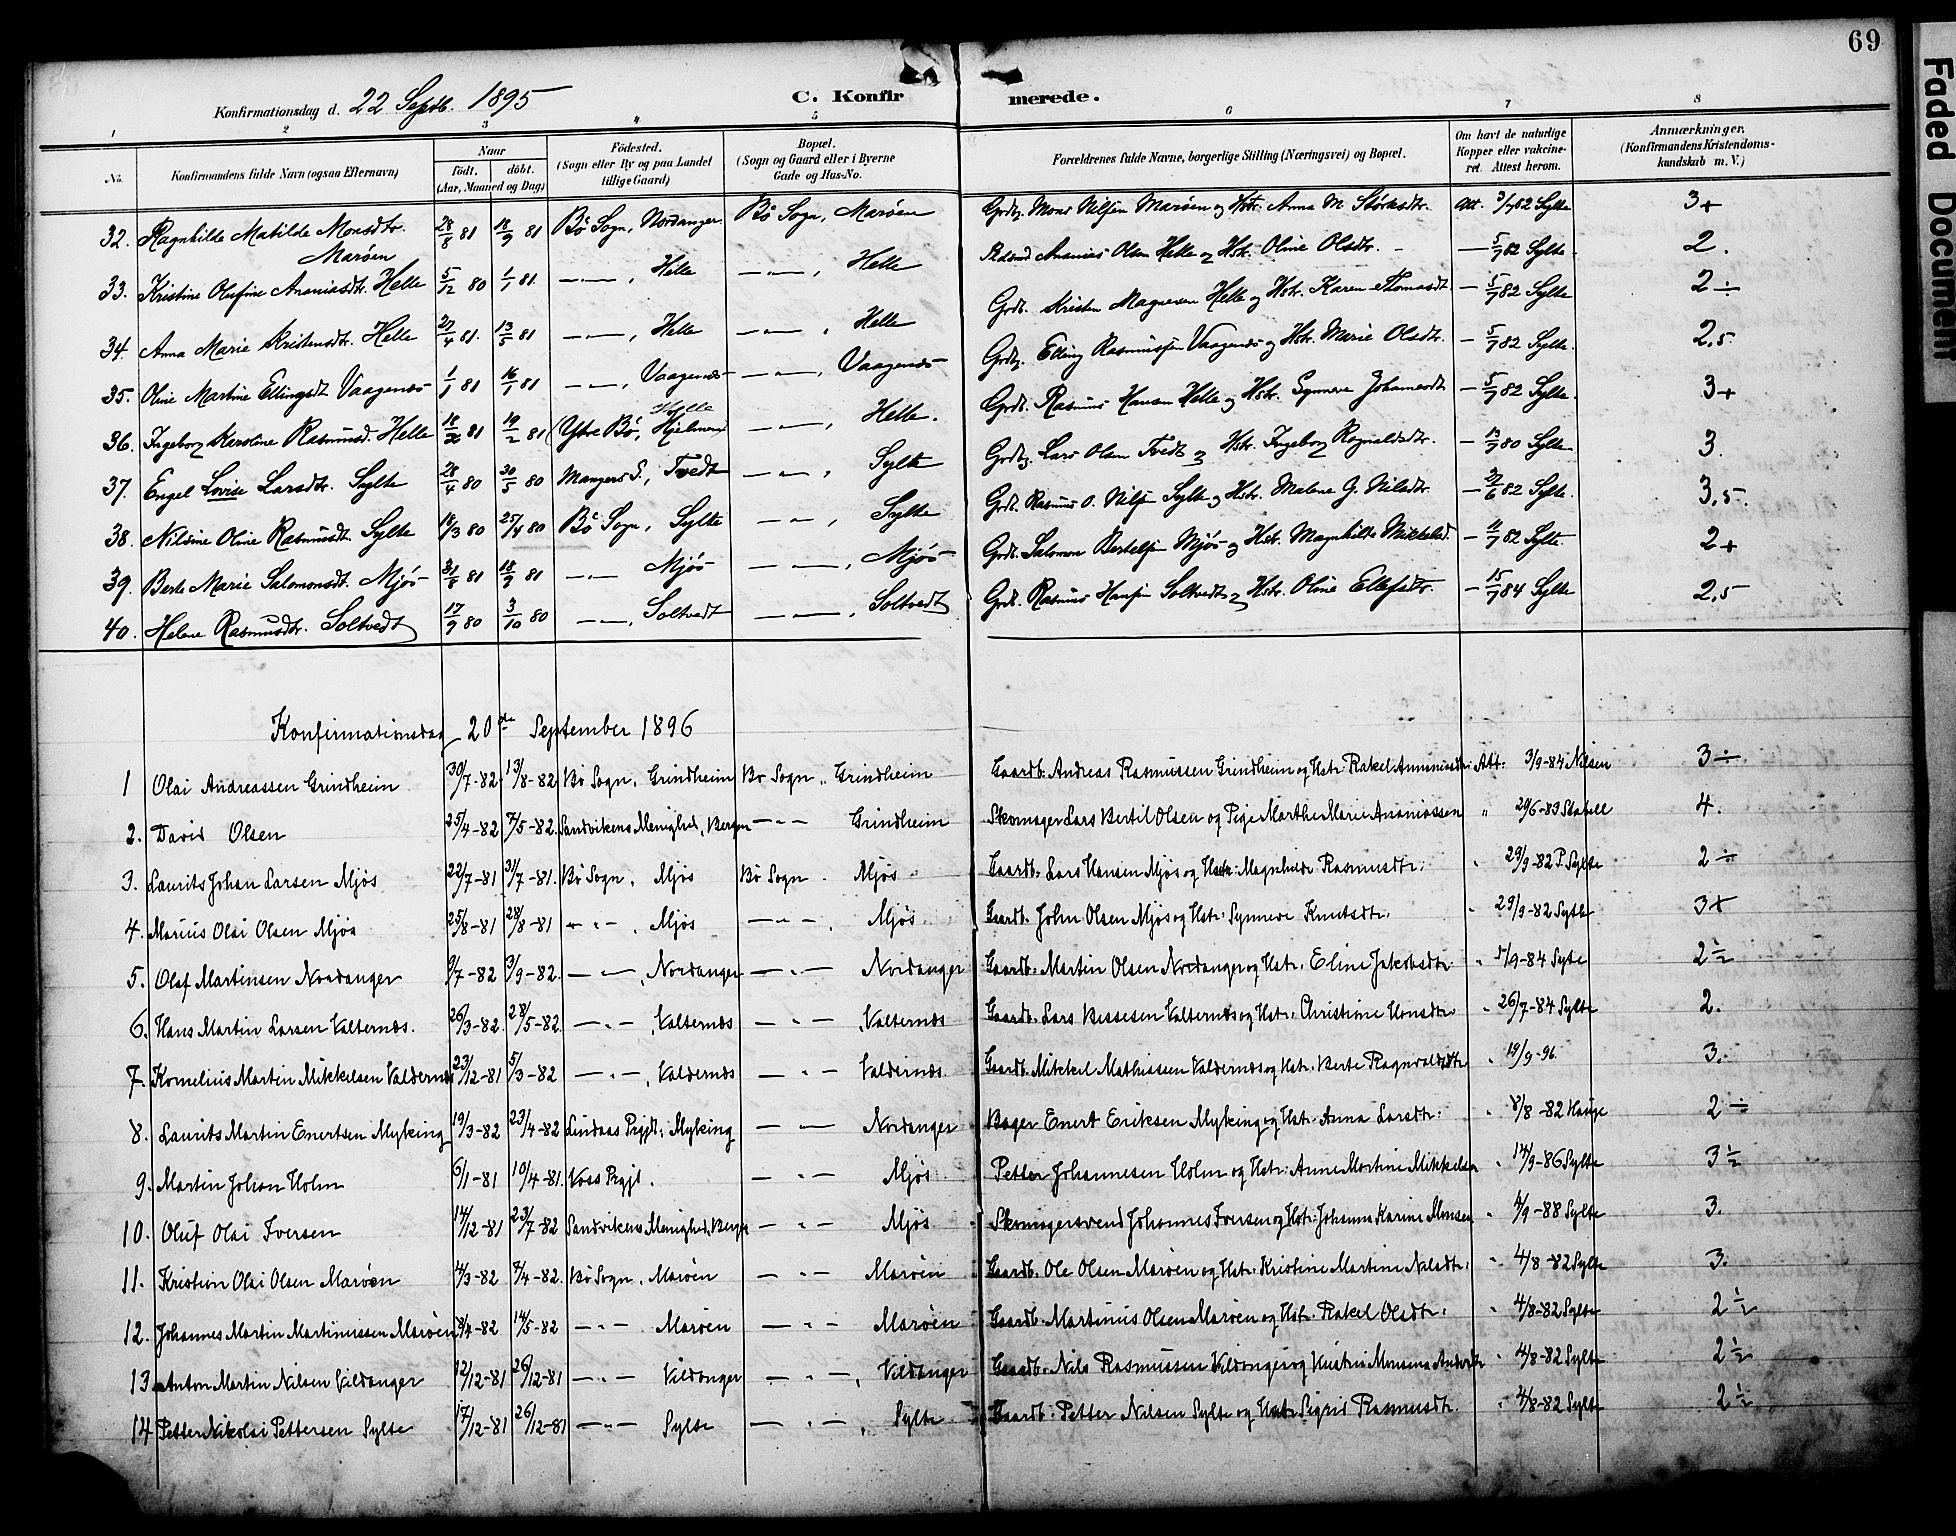 69
Faded Document
Konfirmationsdag d. 22 Septb. 1895
C. Konfirmerede.
1 2 3 4 5 6 7 8
No.
Konfirmandens fulde Navn (ogsaa Efternavn)
Naar
født. døbt.
(Aar, Maaned og Dag)
Fødested.
(Sogn eller By og paa Landet
tillige Gaard)
Bopæl.
(Sogn og Gaard eller i Byerne
Gade og Hus-No.
Forældrenes fulde Navne, borgerlige Stilling (Næringsvei) og Bopæl.
Om havt de naturlige
Kopper eller vakcine-
ret. Attest herom.
Anmærkninger.
(Konfirmandens Kristendoms-
kundskab m. V.)
32. Ragnhilde Matilde Monsdtr. Marøen 28/8 81 18/9 81 Bø Sogn, Nordanger Bø Sogn, Marøen Grdbr. Mons Nilsen Marøen og Hstr. Anna M. Størksdtr. Att. 3/7 82 Sylte 3+
33. Kristine Olufine Ananiasdt. Helle 5/12 80 1/1 81 —"—, Helle —"—, Helle Ananias Olsen Helle og Hstr. Oline Olsdtr. — 5/7 82 Sylte 2.
34. Anna Marie Kristensdtr. Helle 27/4 81. 13/5 81 —"—, Helle —"—, Helle Grdb. Kristen Magnesen Helle og Hstr. Karen Thomasdt. — 5/7 82 Sylte 2÷
35. Oline Martine Ellingsdt Vaagenæs 1/1 81 16/1 81 —"—, Vaagenæs —"—, Vaagenæs Grdbr. Elling Rasmussen Vaagenæs og Hstr. Marie Olsdtr. — 5/7 82 Sylte. 2,5
36. Ingeborg Karoline Rasmusd. Helle 81 19/2 81 (Ytre Bø, Hjelmen) Helle —"—, Helle. Grdb. Rasmus Hansen Helle og Hstr. Synneve Johannesdt. — 5/7 82 Sylte. 3+
37. Engel Lovise Larsdtr. Sylte 28/4 80 30/5 80 Mangers S., Tvedt —"—, Sylte Grdbr. Lars Olsen Tvedt og Hstr. Ingeborg Ragnaldsdtr. — 13/7 80 Sylte 3.
38. Nilsine Oline Rasmusdt. Sylte 18/3 80 25/4 80 Bø Sogn, Sylte —"—, Sylte Grdb. Rasmus O. Nilsen Sylte og Hstr. Malene G. Nilsdtr. — 82 Sylte. 3,5.
39. Berte Marie Salomonsdt. Mjøs 31/8 81 18/9 81 —"— Mjøs —"—, Mjøs Grdb. Salomon Bertelsen Mjøs og Hstr. Magnhilde Mikkelsd. — 11/7 82 Sylte. 2+
40. Helene Rasmusdtr. Soltvedt 17/9 80 3/10 80 —"—, Soltvedt —"—, Soltvedt Grdb. Rasmus Hansen Soltvedt og Hstr. Oline Ellefsdtr. — 15/7 84 Sylte 2,5
Konfirmationsdag 20de September 1896
1 Olai Andreassen Grindheim 30/7-82 13/8-82 Bø Sogn, Grindheim Bø Sogn, Grindheim Gaardb. Andreas Rasmussen Grindheim og Hstr. Rakel Ananiasdtr. Att: 3/9-84 Nilsen 3÷
2. David Olsen 25/4-82 7/5-82. Sandvikens Menighed, Bergen —"— Grindheim Skomager Lars Bertil Olsen og Pige Marthe Marie Ananiassen " 29/6-83 Stabell 4.
3. Laurits Johan Larsen Mjøs 22/7-81 31/7-81. Bø Sogn, Mjøs Bø Sogn. Mjøs Gaardb. Lars Hansen Mjøs og Hstr. Magnhilde Rasmusdtr. " 29/9-82 P. Sylte 2÷
4. Marius Olai Olsen Mjøs 25/8-81 28/8-81 —"—, Mjøs —"—, Mjøs Gaardb. John Olsen Mjøs og Hstr. Synneve Knutsdtr. " 29/9-82 Sylte 3+
5. Olaf Martinsen Nordanger 9/7-82 3/9-82. —"—, Nordanger —"— Nordanger Gaardb. Martin Olsen Nordanger og Hstr. Eline Jakobsdtr. " 5/9-84 Sylte 2½
6. Hans Martin Larsen Valternæs. 26/3-82. 28/5-82. —"—, Valternæs —"—, Valternæs Gaardb. Lars Bessesen Valternæs og Hstr. Christine Hansdtr. " 26/7-84 Sylte 2.
7. Kornelius Martin Mikkelsen Valdernæs 23/12-81 5/3-82 —"—, Valdernæs —"— Valdernæs. Gaardb. Mikkel Mathiassen Valdernæs og Hstr. Berte Ragnvaldsdtr " 19/9-96. 3.
8. Laurits Martin Enertsen Myking 19/3-82 23/4-82 Lindaas Prgjd., Myking —"— Nordanger Bager Enert Eriksen Myking og Hstr. Anna Larsdtr. " 8/8-82 Hauge 2÷
9. Martin Johan Holm 6/1-81 10/4-81. Voss Prgjd. —"— Mjøs Petter Johannesen Holm og Hstr. Anne Martine Mikkelsen " 14/9-86 Sylte 3½
10. Oluf Olai Iversen 14/12-81 23/7-82 Sandvikens Menighed, Bergen —"— Mjøs Skomagersvend Johannes Iversen og Hstr. Johanna Karine Monsen " 4/9-88 Sylte 3.
11. Kristian Olai Olsen Marøen 4/3-82 7/4-82. Bø Sogn, Marøen —"— Marøen Gaardb. Ole Olsen Marøen og Hstr. Kristine Martine Nilsdtr. " 4/8-82 Sylte 3.
12. Johannes Martin Martinussen Marøen 9/4-82 14/5-82 —"— Marøen —"— Marøen Gaardb. Martinus Olsen Marøen og Hstr. Rakel Olsdtr. " 4/8-82 Sylte 2½
13. Anton Martin Nilsen Vildanger 12/12-81 26/12-81 —"— Vildanger —"—, Vildanger Gaardb. Nils Rasmussen Vildanger og Hustru Monsena " 4/8-82 Sylte 2½
14 Petter Nikolai Pettersen Sylte 17/12-81 26/12-81 —"— Sylte —"—, Sylte Gaardb. Petter Nilsen Sylte og Hstr. Sigrid Rasmusdtr. " 4/8-82 Sylte 2½